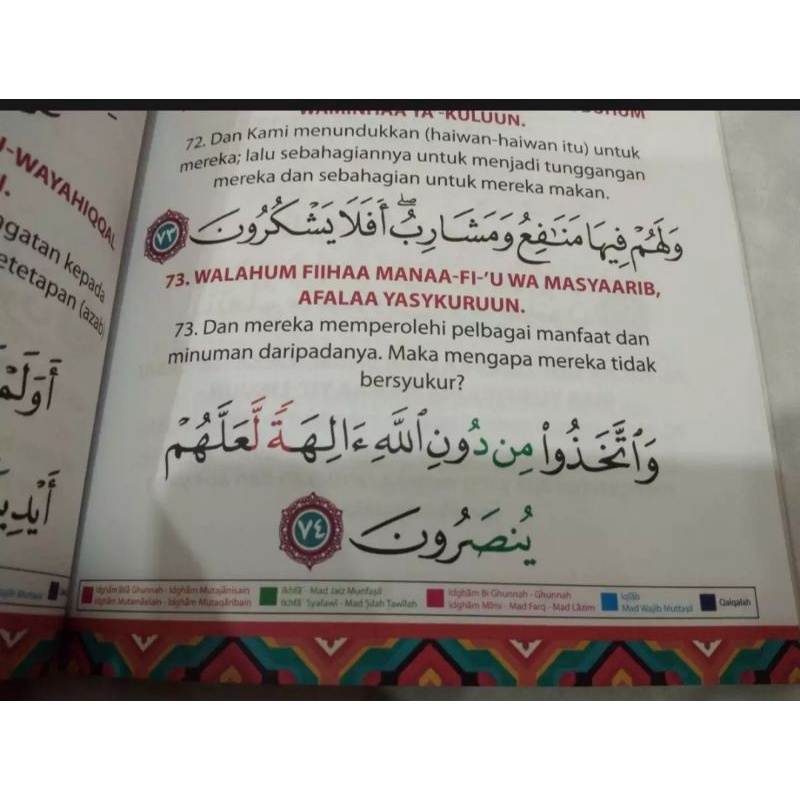 WAMINHAA YA'-KULUUN.
72. Dan Kami menundukkan (haiwan-haiwan itu) untuk
mereka; lalu sebahagiannya untuk menjadi tunggangan
mereka dan sebahagian untuk mereka makan.
وَلَهُمْ فِيهَا مَنَٰفِعُ وَمَشَارِبُ ۖ أَفَلَا يَشْكُرُونَ ٧٣
73. WALAHUM FIIHAA MANAA-FI-'U WA MASYAARIB,
AFALAA YASYKURUUN.
73. Dan mereka memperolehi pelbagai manfaat dan
minuman daripadanya. Maka mengapa mereka tidak
bersyukur?
وَٱتَّخَذُوا۟ مِن دُونِ ٱللَّهِ ءَالِهَةً لَّعَلَّهُمْ
يُنصَرُونَ ٧٤
Idghâm Bilâ Ghunnah - Idghâm Mutajânisain
Idghâm Mutamâsilain - Idghâm Mutaqâribain
Ikhfâ' - Mad Jaiz Munfasil
Ikhfâ' Syafawî - Mad Silah Tawîlah
Idghâm Bi Ghunnah - Ghunnah
Idghâm Mîmî - Mad Farq - Mad Lâzim
Iqlâb
Mad Wajib Muttasil
Qalqalah
-WAYAHIQQAL
gatan kepada
etetapan (azab)
أَوَلَمْ